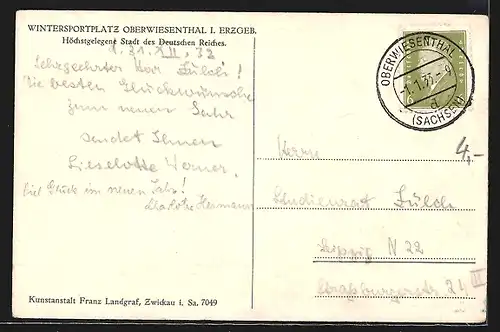 WINTERSPORTPLATZ OBERWIESENTHAL I. ERZGEB.
Höchstgelegene Stadt des Deutschen Reiches.
31. XII. 32
Sehrgeehrter Herr Zülch!
Die besten Glückwünsche
zum neuen Jahr
sendet Ihnen
Lieselotte Werner.
Viel Glück im neuen Jahr!
Charlotte Hermann
OBERWIESENTHAL
-1.1.33.-9
d
(SACHSEN)
Herrn
4,-
Studienrat Zülch
Leipzig N 22
Straßburgerstr 24 III
Kunstanstalt Franz Landgraf, Zwickau i. Sa. 7049